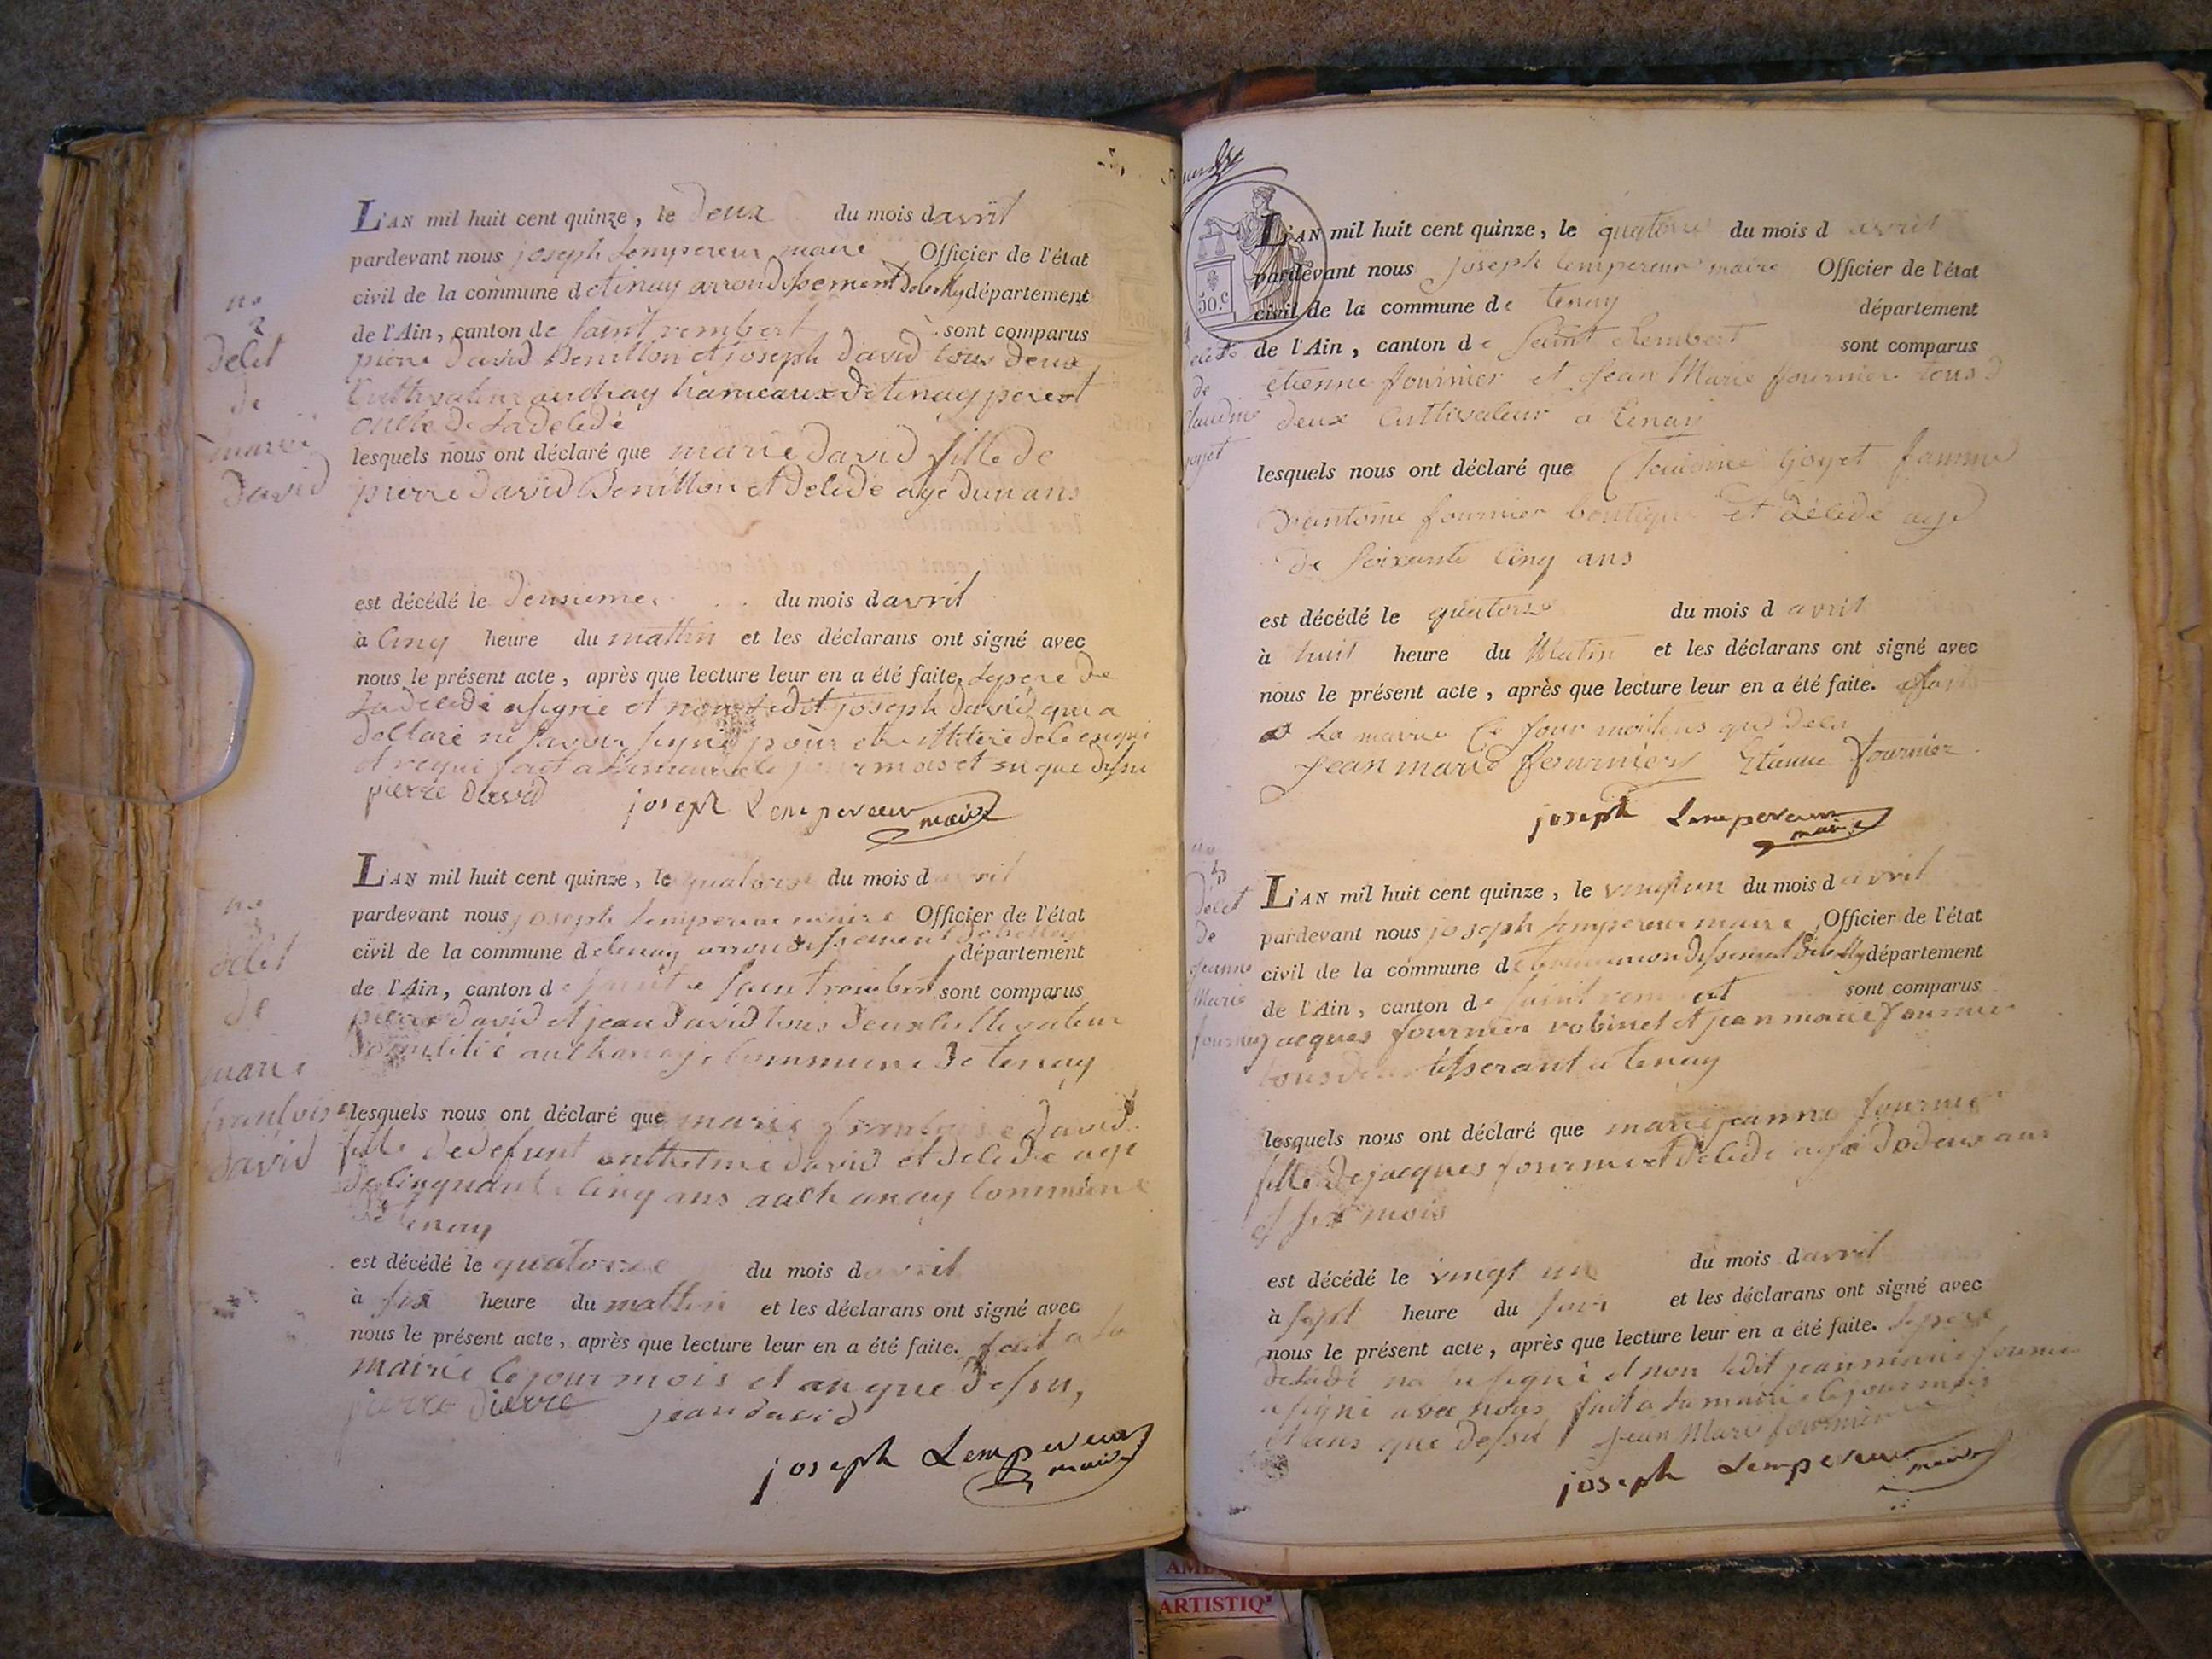 no
2
delét
de
marie
david
L'AN mil huit cent quinze, le deux du mois davril
pardevant nous joseph Lempereur maire Officier de l'état
civil de la commune detenay arrondissement debelley département
de l'Ain, canton de saint rembert sont comparus
pierre david Benillon et joseph david tous deux
Cultivateur auchay hameaux detenay pere et
oncle de Ladecédé
lesquels nous ont déclaré que marie david fille de
pierre david Benillon et decedé agé dun ans
est décédé le deusieme du mois davril
à Cinq heure du mattin et les déclarans ont signé avec
nous le présent acte, après que lecture leur en a été faite. Lepere de
Ladecedé asigné et non Ledit joseph david qui a
declaré ne savoir signé pour
et requi fait a lamairie le jour mois et an que desu
pierre David joseph Lempereur maire
no
3
delét
de
marie
francoise
david
L'AN mil huit cent quinze, le quatorze du mois d avril
pardevant nous joseph Lempereur maire Officier de l'état
civil de la commune detenay arrondissement debelley département
de l'Ain, canton de saint rembert sont comparus
pierre david et jean david tous deux cultivateur
domicilié auchanay Commune de tenay
lesquels nous ont déclaré que marie francoise david
fille dedefunt anthelme david et decedé agé
de Cinquante Cinq ans auchanay Commune
de tenay
est décédé le quatorze du mois d avril
à six heure du mattin et les déclarans ont signé avec
nous le présent acte, après que lecture leur en a été faite. fait a La
mairie Lejour mois et an que desu,
jean david
joseph Lempereur maire
50.c
de
Claudine
goyet
L'AN mil huit cent quinze, le quatorse du mois d avril
pardevant nous joseph Lempereur maire Officier de l'état
civil de la commune de tenay département
de l'Ain, canton de Saint Rembert sont comparus
etienne fournier et Jean Marie fournier tous
deux Cultivateur a tenay
lesquels nous ont déclaré que Claudine Goyet famme
fournier et décédé agé
de Soixante Cinq ans
est décédé le quatorse du mois d avril
à huit heure du Matin et les déclarans ont signé avec
nous le présent acte, après que lecture leur en a été faite. fait
a La mairie Le jour
jean marie fournier Etienne fournier
joseph Lempereur maire
no
delét
de
jeanne
Marie
fournier
L'AN mil huit cent quinze, le vingt un du mois d avril
pardevant nous joseph Lempereur maire Officier de l'état
civil de la commune de tenay arrondissement debelley département
de l'Ain, canton de saint rembert sont comparus
jacques fournier robinet et jean marie fournier
tous deux tisserant a tenay
lesquels nous ont déclaré que marie jeanne fournier
fille dejacques fournier et decedé agé de deux ans
et six mois
est décédé le vingt un du mois davril
à sept heure du soir et les déclarans ont signé avec
nous le présent acte, après que lecture leur en a été faite. Lepere
signé et non Ledit jean marie fournier
a signé avec nous fait a Lamairie Lejour mois
et ans que dessu Jean Marie fournier
joseph Lempereur maire
ARTISTIQ